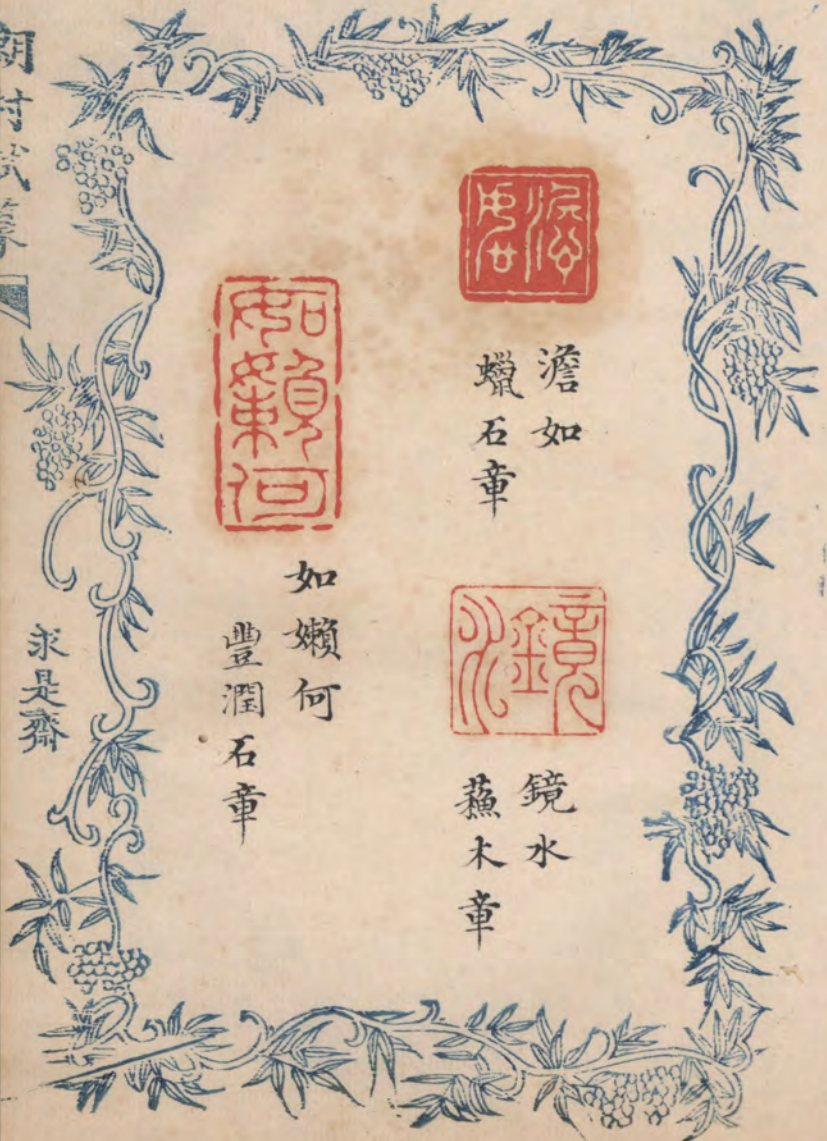 澹如
澹如
蠟石章
鏡水
鏡水
蘓木章
如嬾何
如嬾何
豐潤石章
求是齋